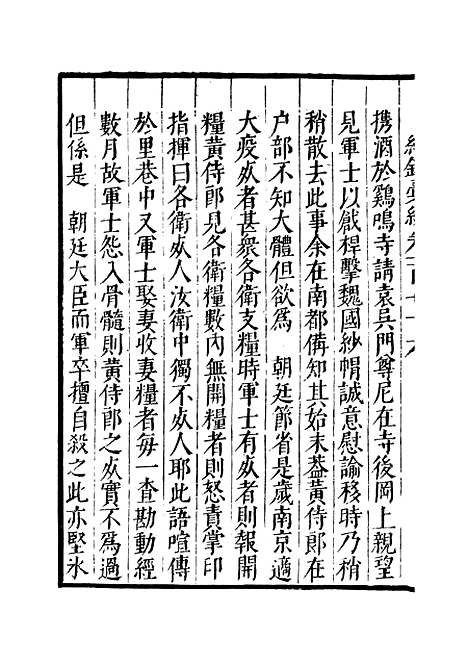 紀錄彙編卷一百七十六
攜酒於鷄鳴寺請袁兵門尊尼在寺後岡上親望
見軍士以戧桿擊魏國紗㡌誠意慰諭移時乃稍
稍散去此事余在南都備知其始末葢黃侍郎在
户部不知大體但欲爲　朝廷節省是歲南京適
大疫㱙者甚衆各衛支糧時軍士有㱙者則報開
糧黃侍郎見各衛糧數內無開糧者則怒責掌印
指揮曰各衛㱙人汝衛中獨不㱙人耶此語喧傳
於里巷中又軍士娶妻收妻糧者每一查勘動經
數月故軍士怨入骨髓則黃侍郎之㱙實不爲過
但係是　朝廷大臣而軍卒擅自殺之此亦堅氷